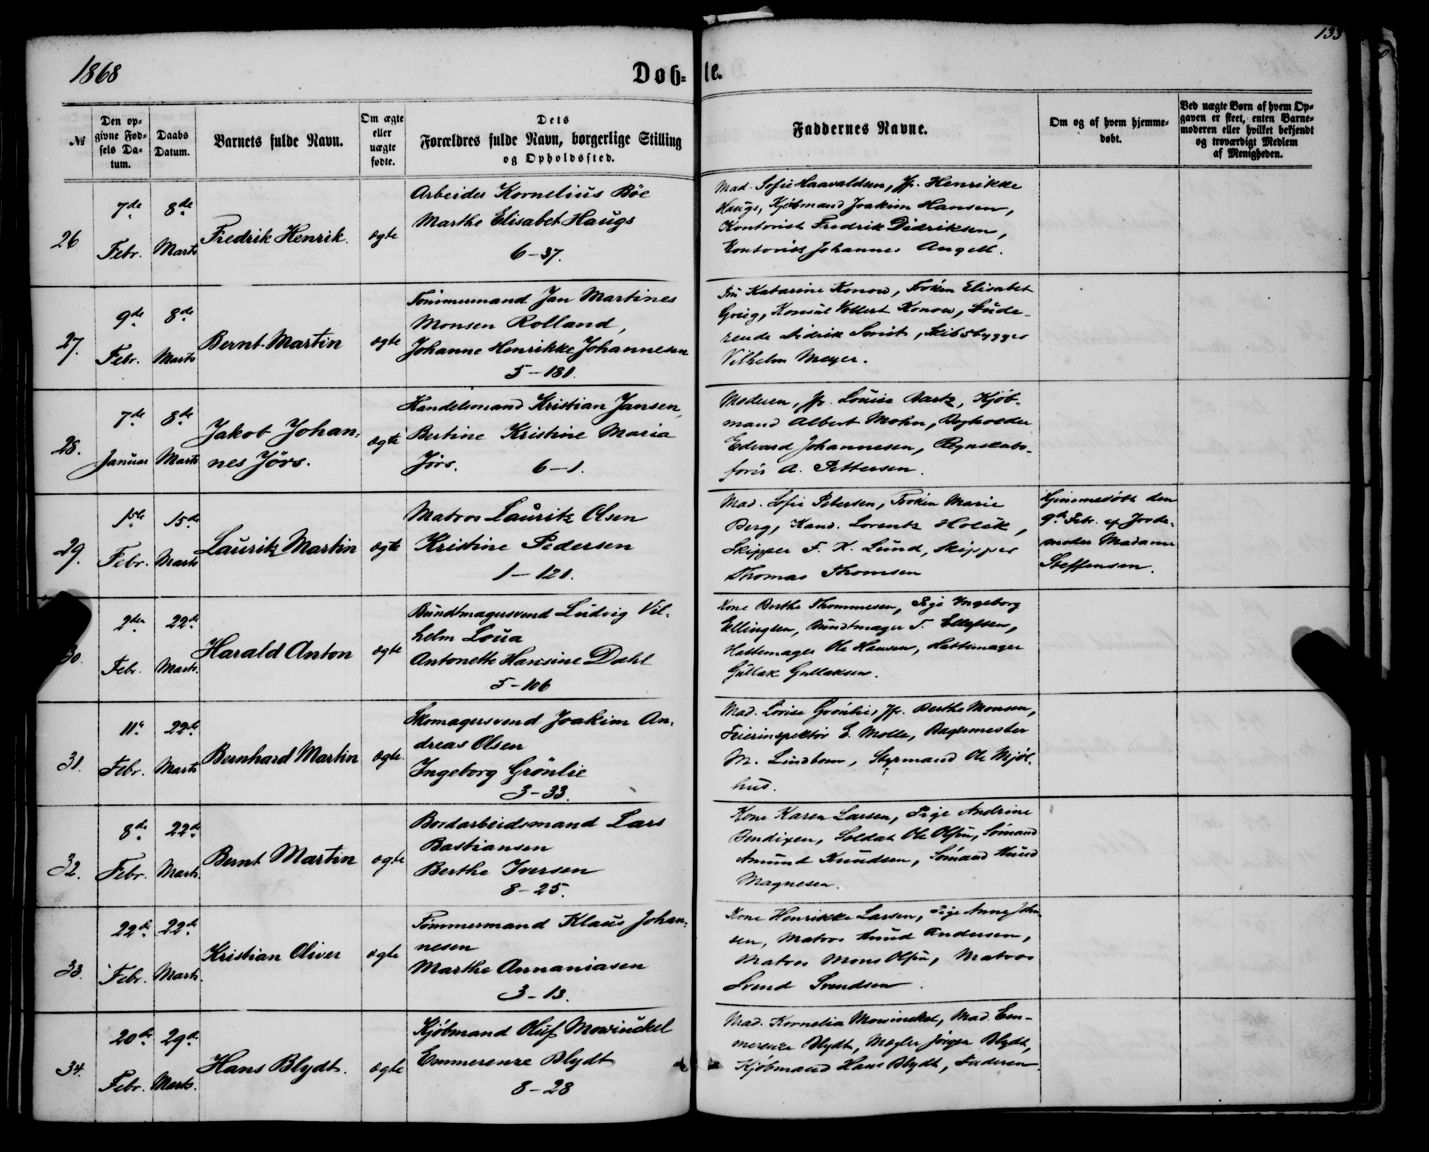 1868
Døbte.
133
№
Den opgivne Fødsels Datum.
Daabs Datum.
Barnets fulde Navn.
Om ægte eller uægte fødte.
Dets Forældres fulde Navn, borgerlige Stilling og Opholdssted.
Faddernes Navne.
Om og af hvem hjemmedøbt.
Ved uægte Børn af hvem Opgaven er skeet, enten Barnemoderen eller hvilket bekjendt og troværdigt Medlem af Menigheden.
26
7de Febr.
8de Marts
Fredrik Henrik.
ægte
Arbeider Kornelius Böe
Marthe Elisabet Haugs
6-37.
Mad. Sofie Haavaldsen, Jfr. Henrikke
Haugs, Kjöbmand Joakim Hansen,
Kontorist Fredrik Didriksen,
Kontorist Johannes Angell.
27.
9de Febr.
8de Marts
Bernt Martin
ægte
Tömmermand Jan Martines
Monsen Rolland,
Johanne Henrikke Johannesen
5-181.
Fru Katarine Konow, Fröken Elisabet
Grieg, Konsul Wollert Konow, Stude-
rende Didrik Smit, Skibsbygger
Vilhelm Meyer.
28.
7de Januar
8de Marts
Jakob Johan-
nes Jörs.
ægte
Handelsmand Kristian Jansen,
Bertine Kristine Maria
Jörs. 6-1.
Moderen, Jfr. Louise Aartz, Kjöb-
mand Albert Mohn,
Edvard Johannesen, Regnskabs-
förer A. Pettersen.
29.
1ste Febr.
15de Marts
Lauritz Martin
ægte
Matros Lauritz Olsen
Kristine Pedersen
1-121.
Mad. Sofie Petersen, Fröken Marie
Berg, Kand. Lorentz Holck,
Skipper T. K. Lund, Skipper
Thomas Thomsen
Hjemmedöbt den
9de Febr. af Jorde-
moder Madame
Steffensen.
30.
2den Febr.
22de Marts.
Harald Anton
ægte
Bundtmagersvend Ludvig Vil-
helm Loua
Antonette Hansine Dahl
5-106
Kone Berthe Thommesen, Pige Ingeborg
Ellingsen, Bundtmager T. Ellefsen,
Hattemager Ole Hansen, Hattemager
Gullak Gullaksen.
31.
11te Febr.
22de Marts
Bernhard Martin
ægte
Skomagersvend Joakim An-
dreas Olsen
Ingeborg Grönlie
3-33.
Mad. Lovise Grönlie, Jfr. Berthe Monsen,
Feierinspektör E. Molle, Bagermester
M. Lindbom, Styrmand Ole Mjöl-
hud.
32.
8de Febr.
22de Marts.
Bernt Martin
ægte
Bordarbeidsmand Lars
Bastiansen
Berthe Iversen
8-25.
Kone Karen Larsen, Pige Andrine
Bendixen, Soldat Ole Olsen, Sömand
Amund Knudsen, Sömand Knud
Magnesen.
33.
22de Febr.
22de Marts.
Kristian Oliver
ægte
Tömmermand Klaus Johan-
nesen
Marthe Annaniasen
3-13.
Kone Henrikke Larsen, Pige Anne John-
sen, Matros Knud Andersen,
Matros Mons Olsen, Matros
Svend Svendsen.
34.
20de Febr.
29de Marts.
Hans Blydt.
ægte
Kjöbmand Oluf Mowinckel
Emmerenze Blydt
8-28
Mad. Kornelia Mowinckel, Mad. Em-
merenze Blydt, Mægler Jörgen Blydt,
Kjöbmand Hans Blydt, Faderen.